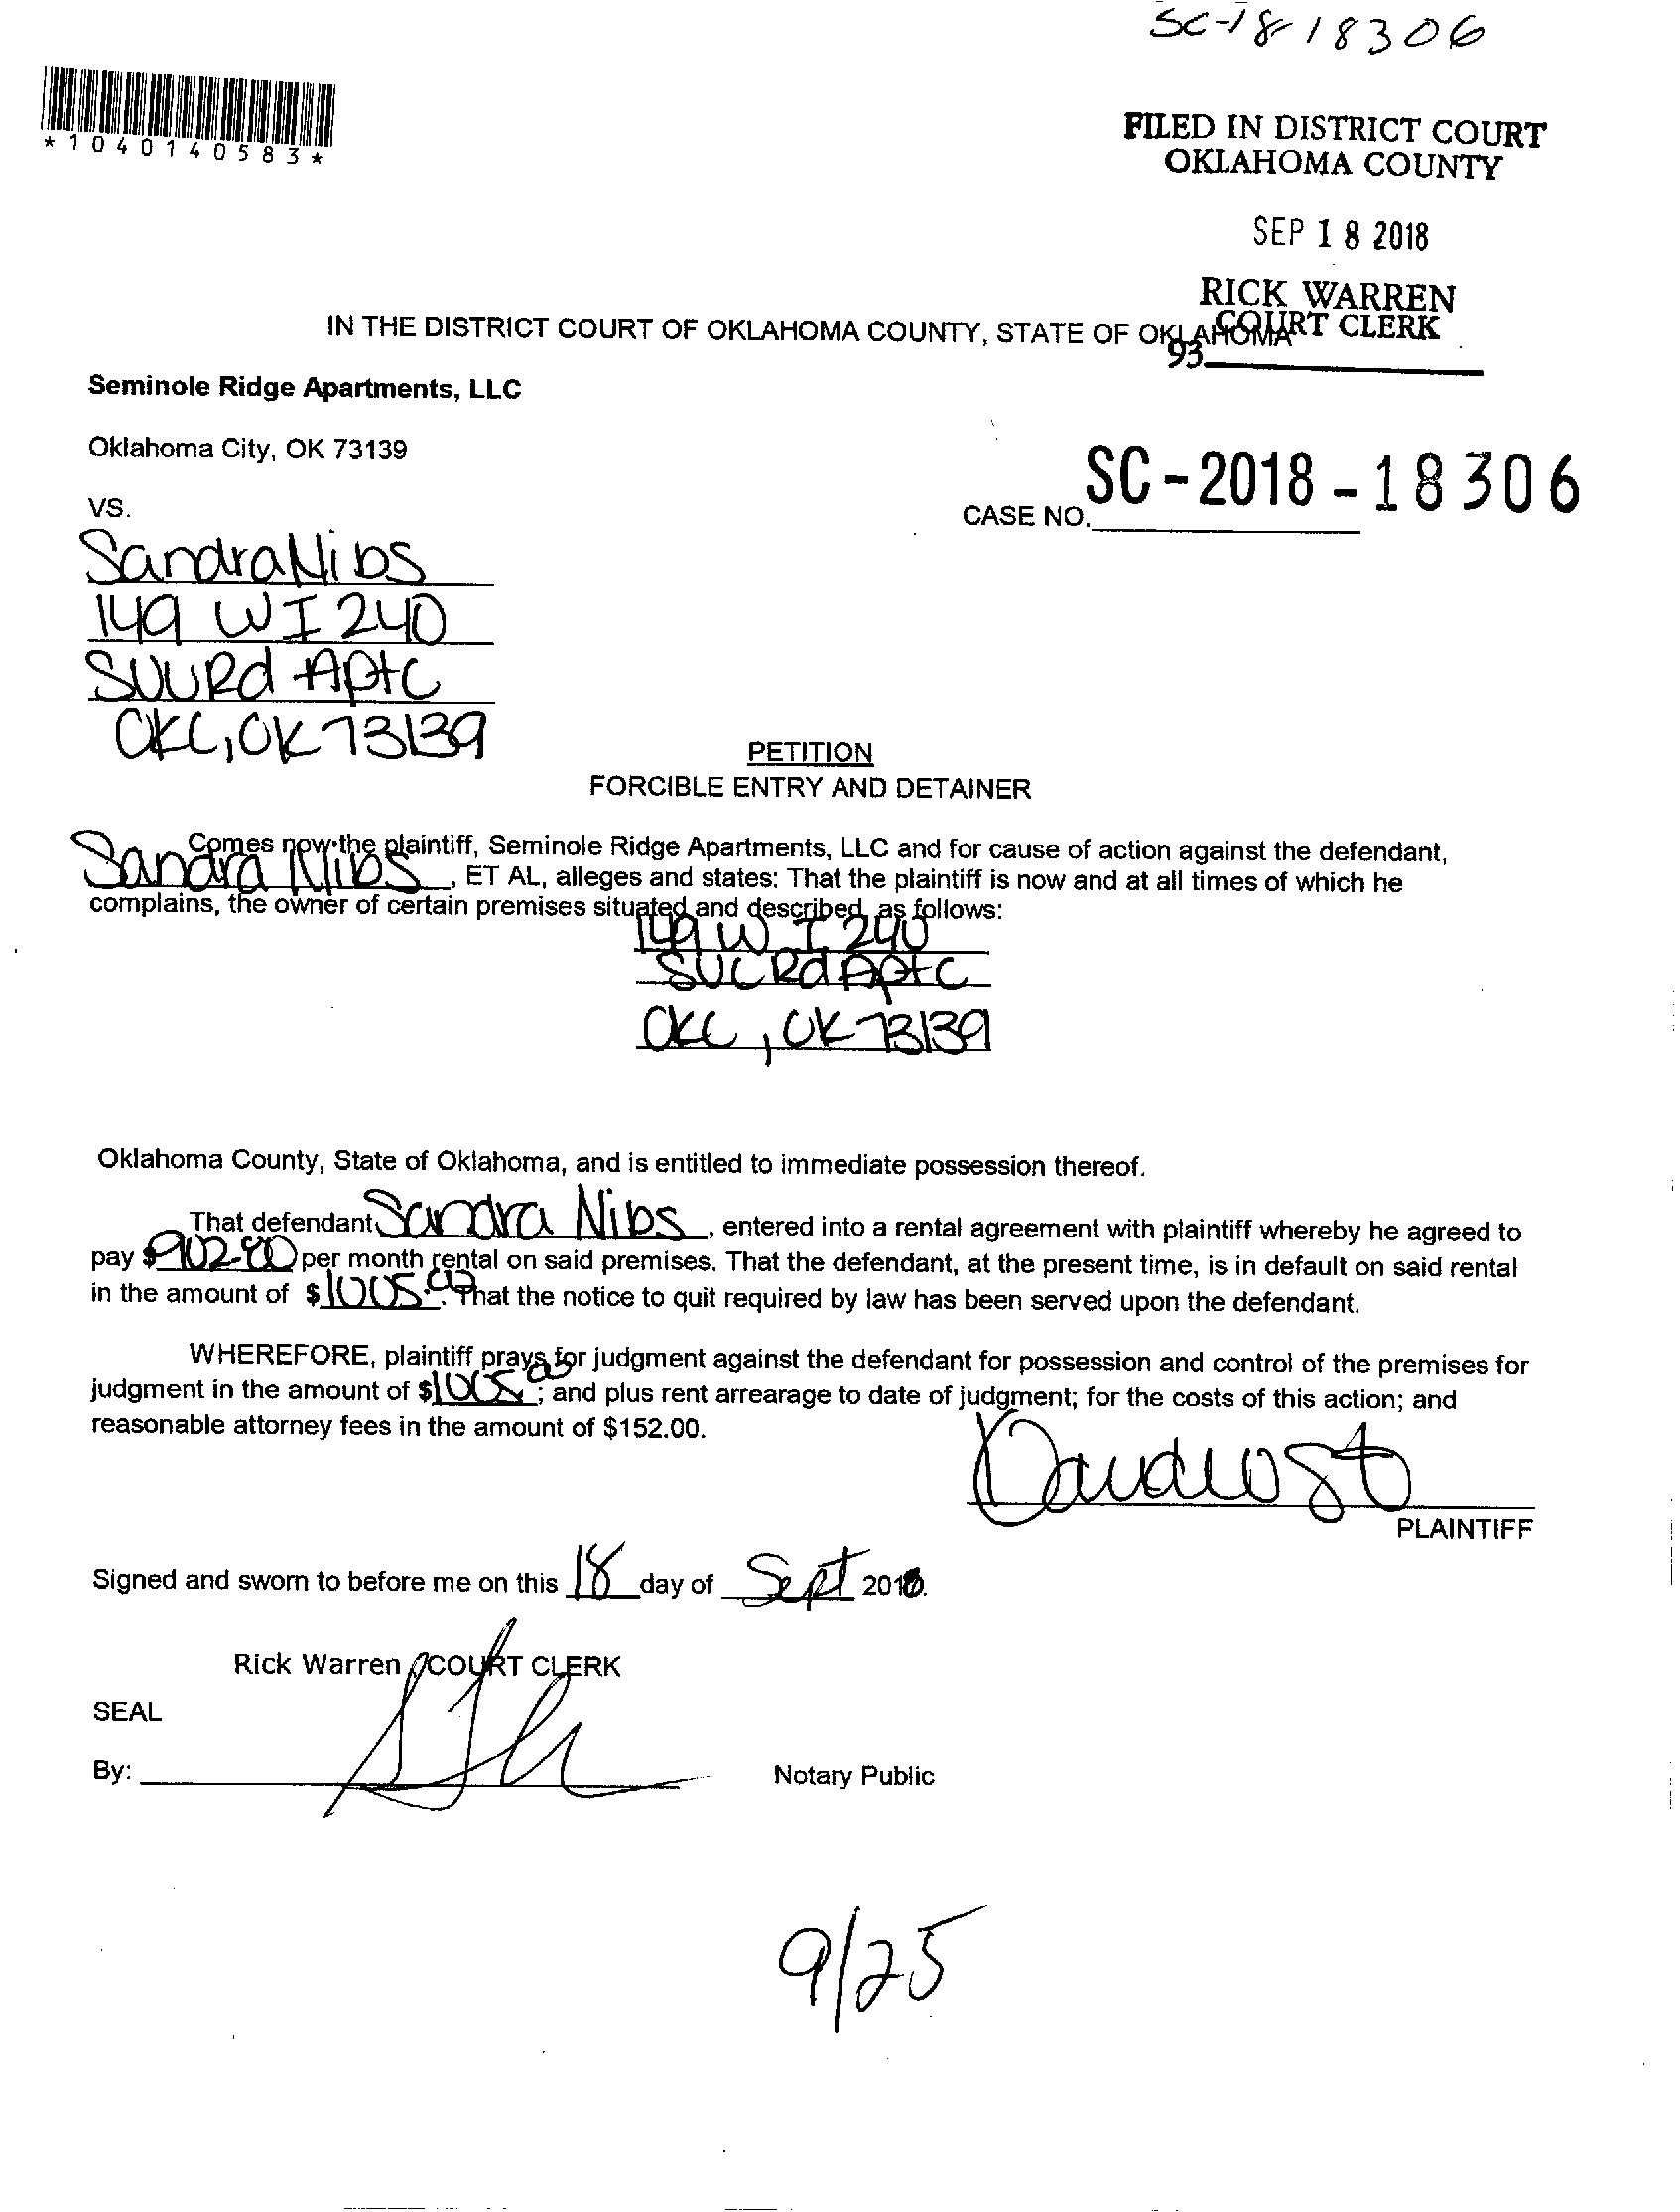 SC-18-18306
*1040140583*
FILED IN DISTRICT COURT
OKLAHOMA COUNTY
SEP 18 2018
RICK WARREN
COURT CLERK
93
IN THE DISTRICT COURT OF OKLAHOMA COUNTY, STATE OF OKLAHOMA
Seminole Ridge Apartments, LLC
Oklahoma City, OK 73139
VS.
CASE NO. SC-2018-18306
Sandra Nibs
149 W I 240
Rd Apt C
OKC, OK 73139
PETITION
FORCIBLE ENTRY AND DETAINER
Comes now the plaintiff, Seminole Ridge Apartments, LLC and for cause of action against the defendant,
Sandra Nibs, ET AL, alleges and states: That the plaintiff is now and at all times of which he
complains, the owner of certain premises situated and described as follows:
149 W I 240
Rd Apt C
OKC, OK 73139
Oklahoma County, State of Oklahoma, and is entitled to immediate possession thereof.
That defendant Sandra Nibs, entered into a rental agreement with plaintiff whereby he agreed to
pay $ per month rental on said premises. That the defendant, at the present time, is in default on said rental
in the amount of $ . That the notice to quit required by law has been served upon the defendant.
WHEREFORE, plaintiff prays for judgment against the defendant for possession and control of the premises for
judgment in the amount of $ ; and plus rent arrearage to date of judgment; for the costs of this action; and
reasonable attorney fees in the amount of $152.00.
PLAINTIFF
Signed and sworn to before me on this 18 day of Sept 2018.
Rick Warren, COURT CLERK
SEAL
By:
Notary Public
9/25